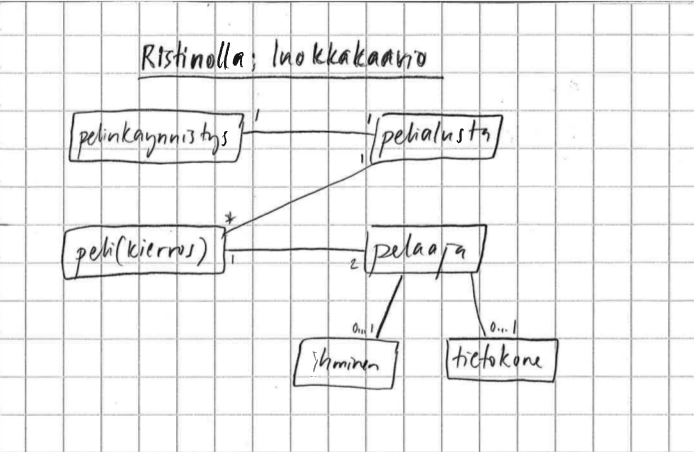 Ristinolla; luokkakaavio
pelinkäynnistys 1 1 pelialusta
1
*
peli(kierros) 1 2 pelaaja
0...1 0...1
ihminen tietokone